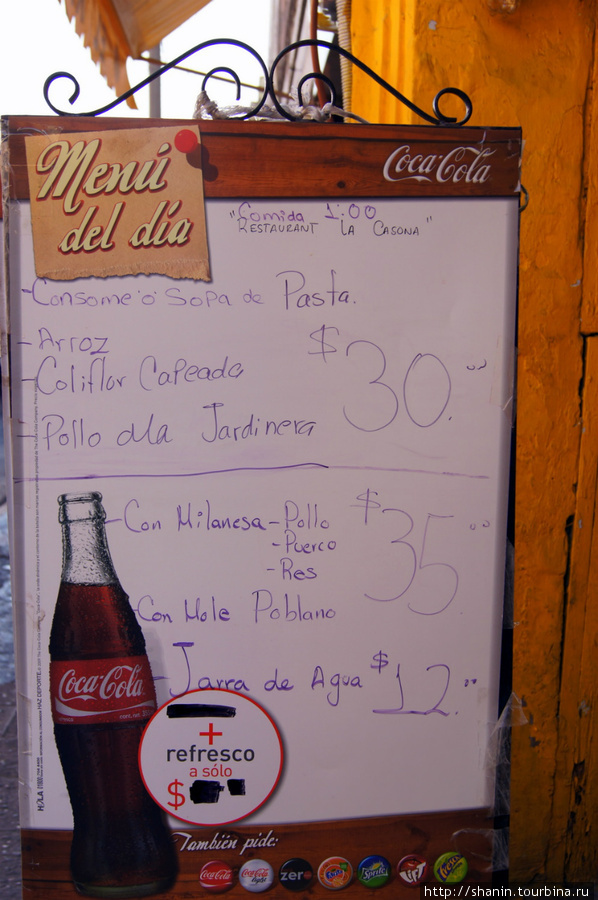 Coca-Cola
Menú
del día
"Comida 1:00
RESTAURANT LA CASONA"
-Consome ó Sopa de Pasta.
-Arroz
-Coliflor Capeada
-Pollo ala Jardinera
$30.00
-Con Milanesa-Pollo
-Puerco
-Res
$35.00
-Con Mole Poblano
-Jarra de Agua $12.00
Coca-Cola
+
refresco
a sólo
$
También pide:
Coca-Cola
Coca-Cola
light
zero
Fanta
Sprite
http://shanin.tourbina.ru